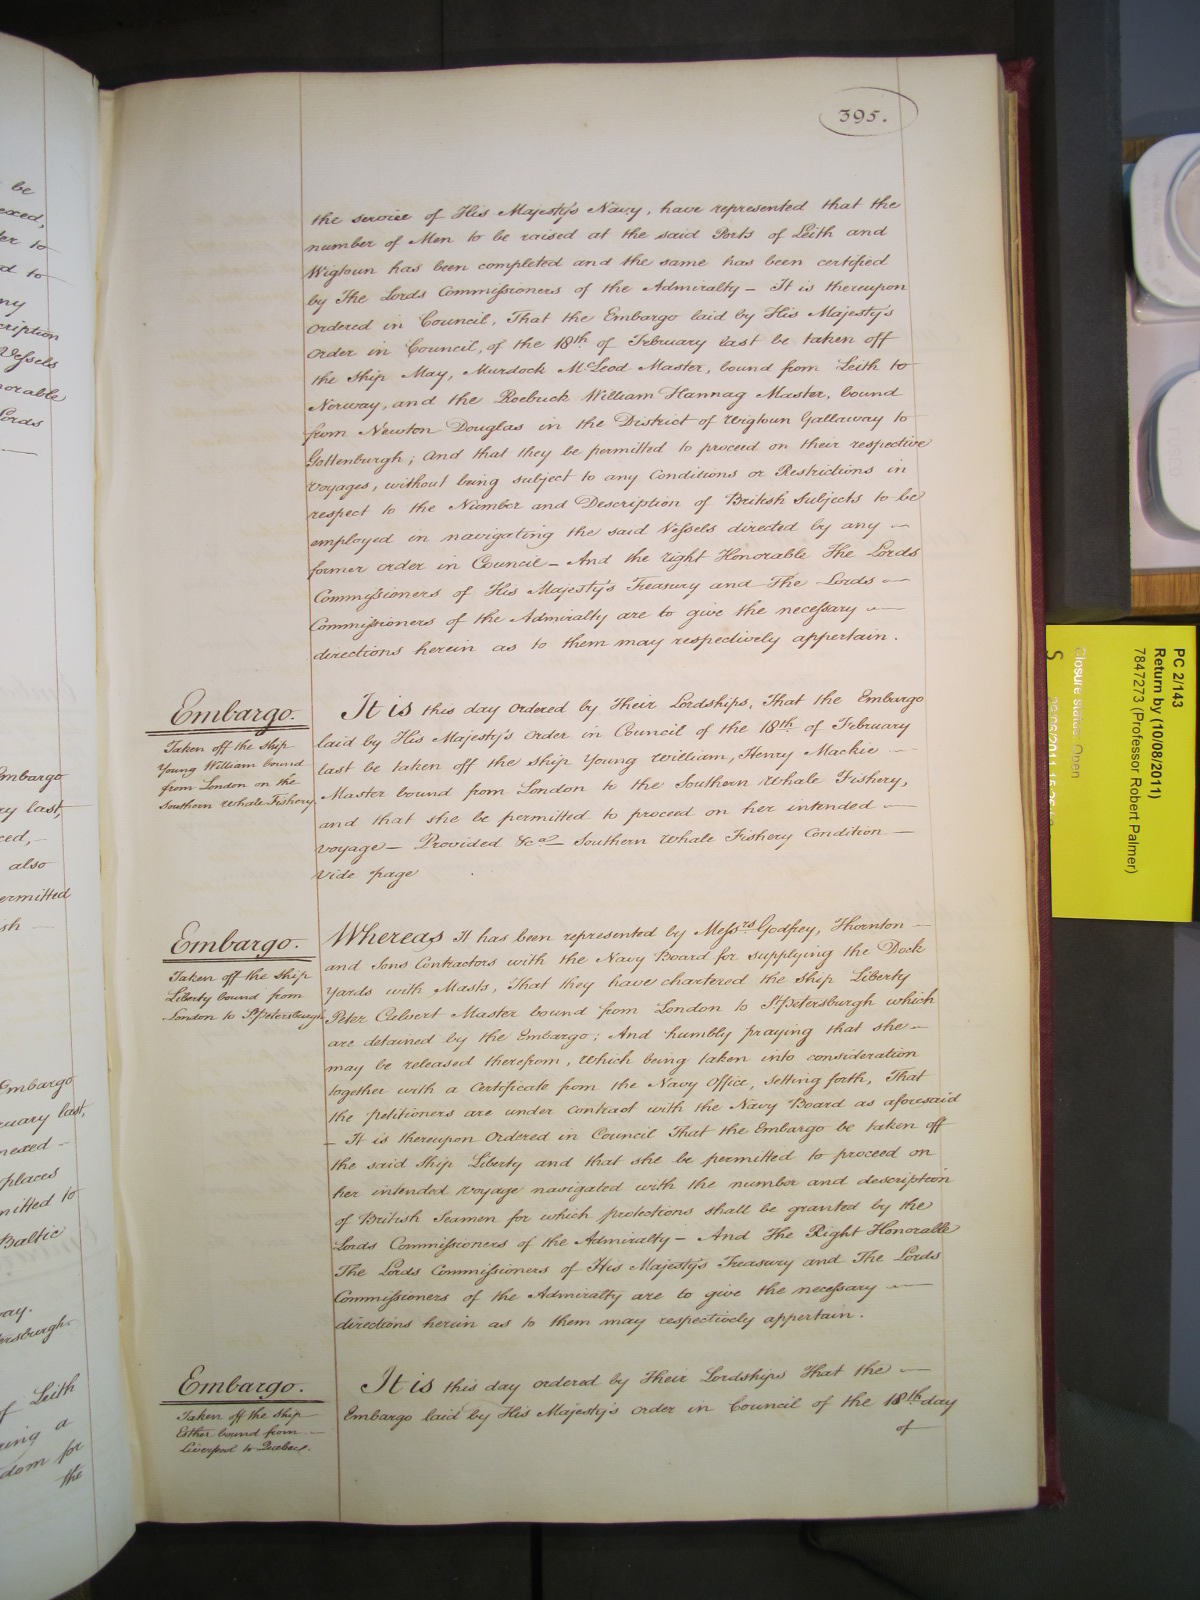 be
exed,
der to
d to
ny
cription
Vessels
norable
Lords
Embargo
ry last,
ced,—
also
ermitted
ish —
Embargo
ruary last,
nexed —
places
mitted to
Baltic
way.
tersburgh.
of Leith
ring a
dom for
the
395.
the service of His Majesty's Navy, have represented that the
number of Men to be raised at the said Ports of Leith and
Wigtoun has been completed and the same has been certified
by The Lords Commissioners of the Admiralty — It is thereupon
Ordered in Council, That the Embargo laid by His Majesty's
Order in Council, of the 18th of February last be taken off
the Ship May, Murdock McLeod Master, bound from Leith to
Norway, and the Roebuck William Hannag Master, bound
from Newton Douglas in the District of Wigtoun Gallaway to
Gottenburgh; And that they be permitted to proceed on their respective
Voyages, without being subject to any Conditions or Restrictions in
respect to the Number and Description of British Subjects to be
employed in navigating the said Vessels directed by any —
former order in Council — And the right Honorable The Lords
Commissioners of His Majesty's Treasury and The Lords —
Commissioners of the Admiralty are to give the necessary —
directions herein as to them may respectively appertain.
Embargo.
Taken off the Ship
Young William bound
from London on the
Southern Whale Fishery.
It is this day ordered by Their Lordships, That the Embargo
laid by His Majesty's Order in Council of the 18th of February
last be taken off the Ship Young William, Henry Mackie —
Master bound from London to the Southern Whale Fishery,
and that she be permitted to proceed on her intended —
Voyage — Provided &ca — Southern Whale Fishery Condition —
Vide page
Embargo.
Taken off the Ship
Liberty bound from
London to St Petersburgh.
Whereas it has been represented by Messrs Godfrey, Thornton —
and Sons Contractors with the Navy Board for supplying the Dock
Yards with Masts, That they have chartered the Ship Liberty
Peter Calvert Master bound from London to St Petersburgh which
are detained by the Embargo; And humbly praying that she —
may be released therefrom, Which being taken into consideration
together with a Certificate from the Navy Office, setting forth, That
the petitioners are under contract with the Navy Board as aforesaid
— It is thereupon Ordered in Council That the Embargo be taken off
the said Ship Liberty and that she be permitted to proceed on
her intended Voyage navigated with the number and description
of British Seamen for which protections shall be granted by the
Lords Commissioners of the Admiralty — And The Right Honorable
The Lords Commissioners of His Majesty's Treasury and The Lords
Commissioners of the Admiralty are to give the necessary —
directions herein as to them may respectively appertain.
Embargo.
Taken off the Ship
Esther bound from —
Liverpool to Quebec.
It is this day ordered by Their Lordships That the —
Embargo laid by His Majesty's order in Council of the 18th day
of
PC 2/143
Return by (10/08/2011)
7847273 (Professor Robert Palmer)
Closure status: Open
S